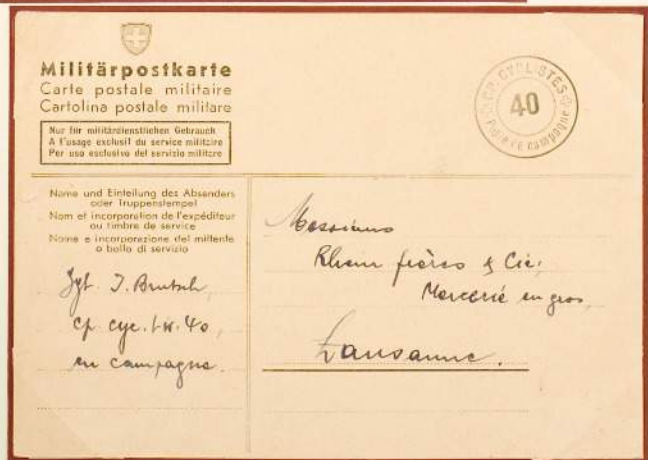 Militärpostkarte
Carte postale militaire
Cartolina postale militare
Nur für militärdienstlichen Gebrauch
A l'usage exclusif du service militaire
Per uso esclusivo del servizio militare
CP. CYCLISTES
40
Poste de campagne
Name und Einteilung des Absenders
oder Truppenstempel
Nom et incorporation de l'expéditeur
ou timbre de service
Nome e incorporazione del mittente
o bollo di servizio
Sgt. J.
cp. cyc. 40,
en campagne.
Messieurs
frères & Cie.
Mercerie en gros,
Lausanne.